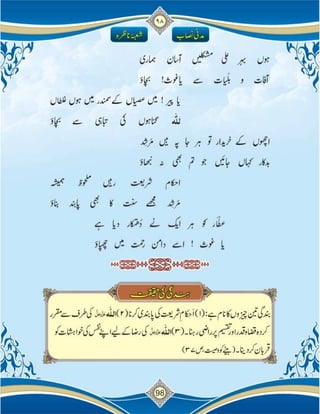 ۹۸
مدنی نصاب
شعبۂ ناظرہ
ہوں بہر علی مشکلیں آسان ہماری
آفات و بلیات سے یا غوث! بچاؤ
یا پیر! میں عصیاں کے سمندر میں ہوں غلطاں
للہ گناہوں کی تباہی سے بچاؤ
اچھوں کے خریدار تو ہر جا پہ ہیں مرشد
بدکار کہاں جائیں جو تم بھی نہ نبھاؤ
احکامِ شریعت رہیں ملحوظ ہمیشہ
مرشد مجھے سنت کا بھی پابند بناؤ
عطار کو ہر ایک نے دھتکار دیا ہے
یا غوث! اسے دامنِ رحمت میں چھپاؤ
بندگی کی حقیقت
بندگی تین چیزوں کا نام ہے: (۱) احکامِ شریعت کی پابندی کرنا (۲) اللہ کی طرف سے مقرر
کردہ قضا و قدر اور تقسیم پر راضی رہنا۔ (۳) اللہ کی رضا کے لیے اپنے نفس کی خواہشات کو
قربان کر دینا۔ (بیٹے کو وصیت، ص ۳۷)
98